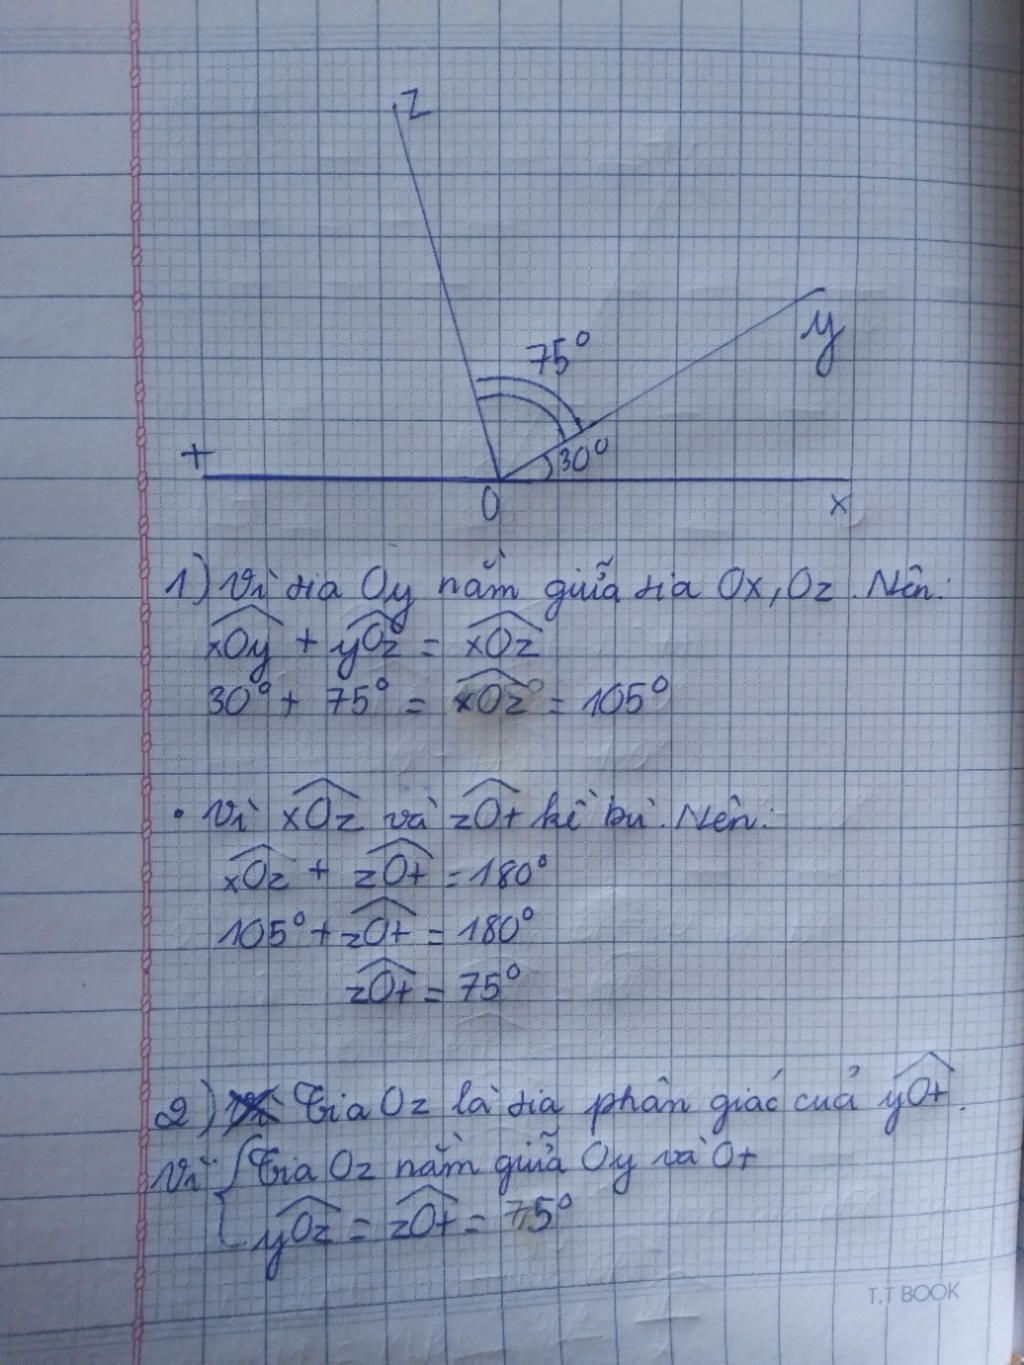 z
y
75°
30°
t
O
x
1) Vì tia Oy nằm giữa tia Ox, Oz. Nên:
xOy + yOz = xOz
30° + 75° = xOz = 105°
• Vì xOz và zOt kề bù. Nên:
xOz + zOt = 180°
105° + zOt = 180°
zOt = 75°
2) Tia Oz là tia phân giác cuả yOt.
Vì { Tia Oz nằm giữa Oy và Ot
yOz = zOt = 75°
T.T BOOK